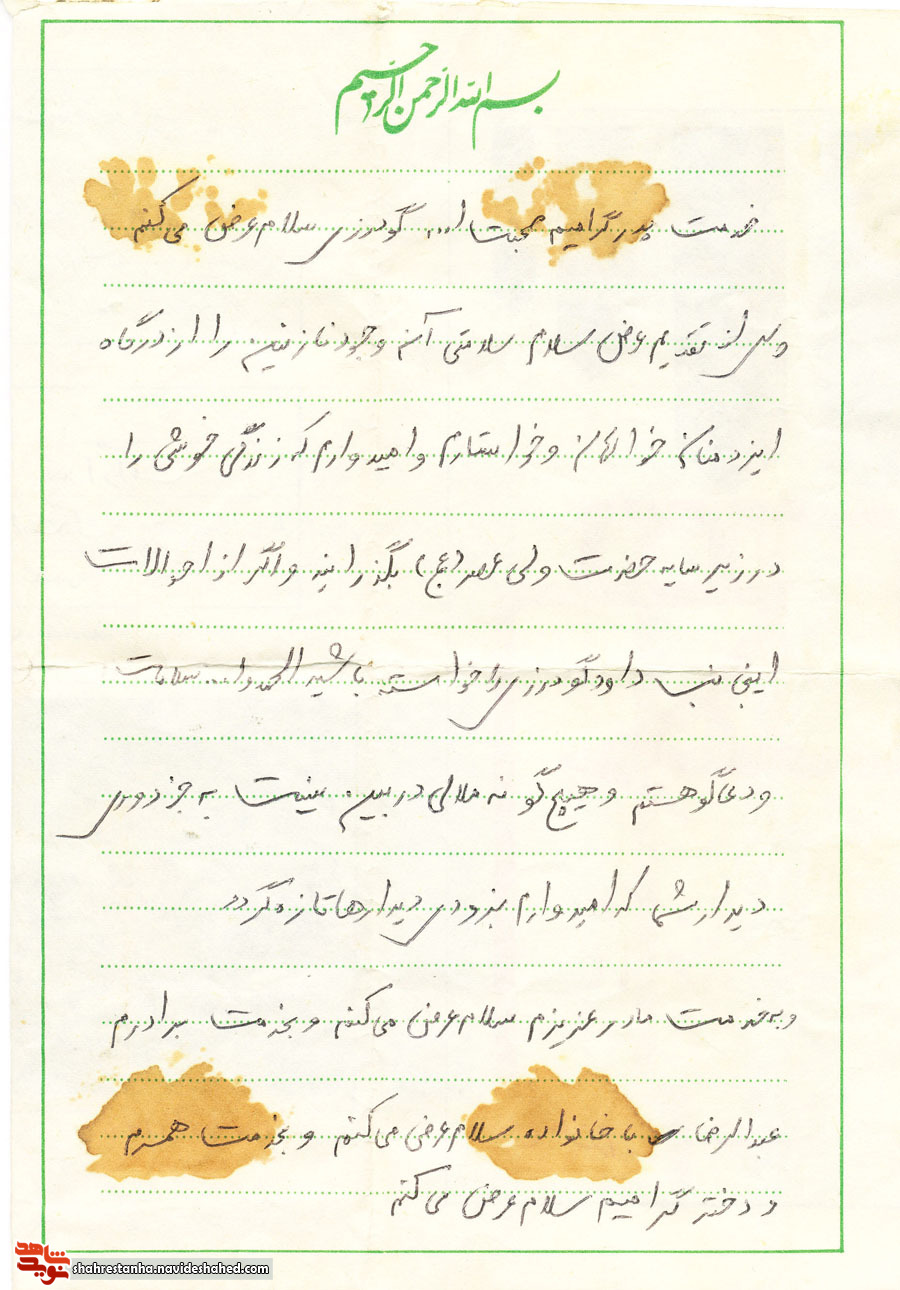 بسم الله الرحمن الرحیم
خدمت پدر گرامیم محبت ا... گودرزی سلام عرض می کنم
و پس از تقدیم عرض سلام سلامتی آن وجود نازنین را از درگاه
ایزد منان خواهان و خواستارم و امیدوارم که زندگی خوشی را
در زیر سایه حضرت ولی عصر (عج) بگذرانید و اگر از احوالات
اینجانب داود گودرزی را خواسته باشید الحمدوا... سلامت
و دعاگو هستم و هیچ گونه ملالی در بین نیست به جز دوری
دیدار شما که امیدوارم بزودی دیدارها تازه گردد
و به خدمت مادر عزیزم سلام عرض می کنم و بخدمت برادرم
عبدالرضا با خانواده سلام عرض می کنم و بخدمت همسرم
و دختر گرامیم سلام عرض می کنم
نوید شاهد
shahrestanha.navideshahed.com